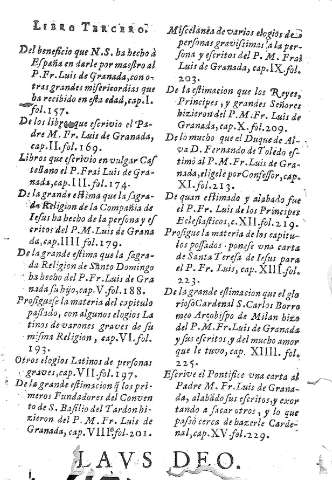 LIBRO TERCERO.
Del beneficio que N.S. ha hecho à
España en darle por maestro al
P. Fr. Luis de Granada, con o-
tras grandes misericordias que
ha recibido en esta edad, cap. I.
fol. 157.
De los libros que escrivio el Padre
M. Fr. Luis de Granada,
cap. II. fol. 169.
Libros que escrivio en vulgar Cas-
tellano el P. Frai Luis de Gra-
nada, cap. III. fol. 174.
De la grande estima que la sagra-
da Religion de la Compañia de
Iesus ha hecho de la persona y es-
critos del P. M. Luis de Grana-
da, cap. IIII. fol. 179.
De la grande estima que la sagra-
da Religion de Santo Domingo
ha hecho del P. Fr. Luis de Gra
nada su hijo, cap. V. fol. 188.
Prosiguese la materia del capitulo
passado, con algunos elogios La
tinos de varones graves de su
misma Religion, cap. VI. fol.
193.
Otros elogios Latinos de personas
graves, cap. VII. fol. 197.
De la grande estimacion q̃ los pri-
meros Fundadores del Conven
to de S. Basilio del Tardon hi-
zieron del P. Fr. Luis de Gra-
nada, cap. VIII. fol. 201.
Miscelanea de varios elogios de
personas gravissimas a la per-
sona y escritos del P. M. Frai
Luis de Granada, cap. IX. fol.
203.
De la estimacion que los Reyes,
Principes, y grandes Señores
hizieron del P. M. Fr. Luis de
Granada, cap. X. fol. 209.
De lo mucho que el Duque de Al-
va D. Fernando de Toledo es-
timó al P. M. Fr. Luis de Gra-
nada, eligele por Confessor, cap.
XI. fol. 213.
De quan estimado y alabado fue
el P. Fr. Luis de los Principes
Eclesiasticos, c. XII. fol. 219.
Prosigue la materia de los capitu-
los passados, ponese una carta
de Santa Teresa de Iesus para
el P. Fr. Luis, cap. XIII. fol.
223.
De la grande estimacion que el glo
rioso Cardenal S. Carlos Borro
meo Arçobispo de Milan hizo
del P. M. Fr. Luis de Granada
y sus escritos, y del mucho amor
que le tuvo, cap. XIIII. fol.
225.
Escrive el Pontifice una carta al
Padre M. Fr. Luis de Grana-
da, alabãdo sus escritos, y exor-
tando a sacar otros, y lo que
passò cerca de hazerle Carde-
nal, cap. XV. fol. 229.
LAVS DEO.